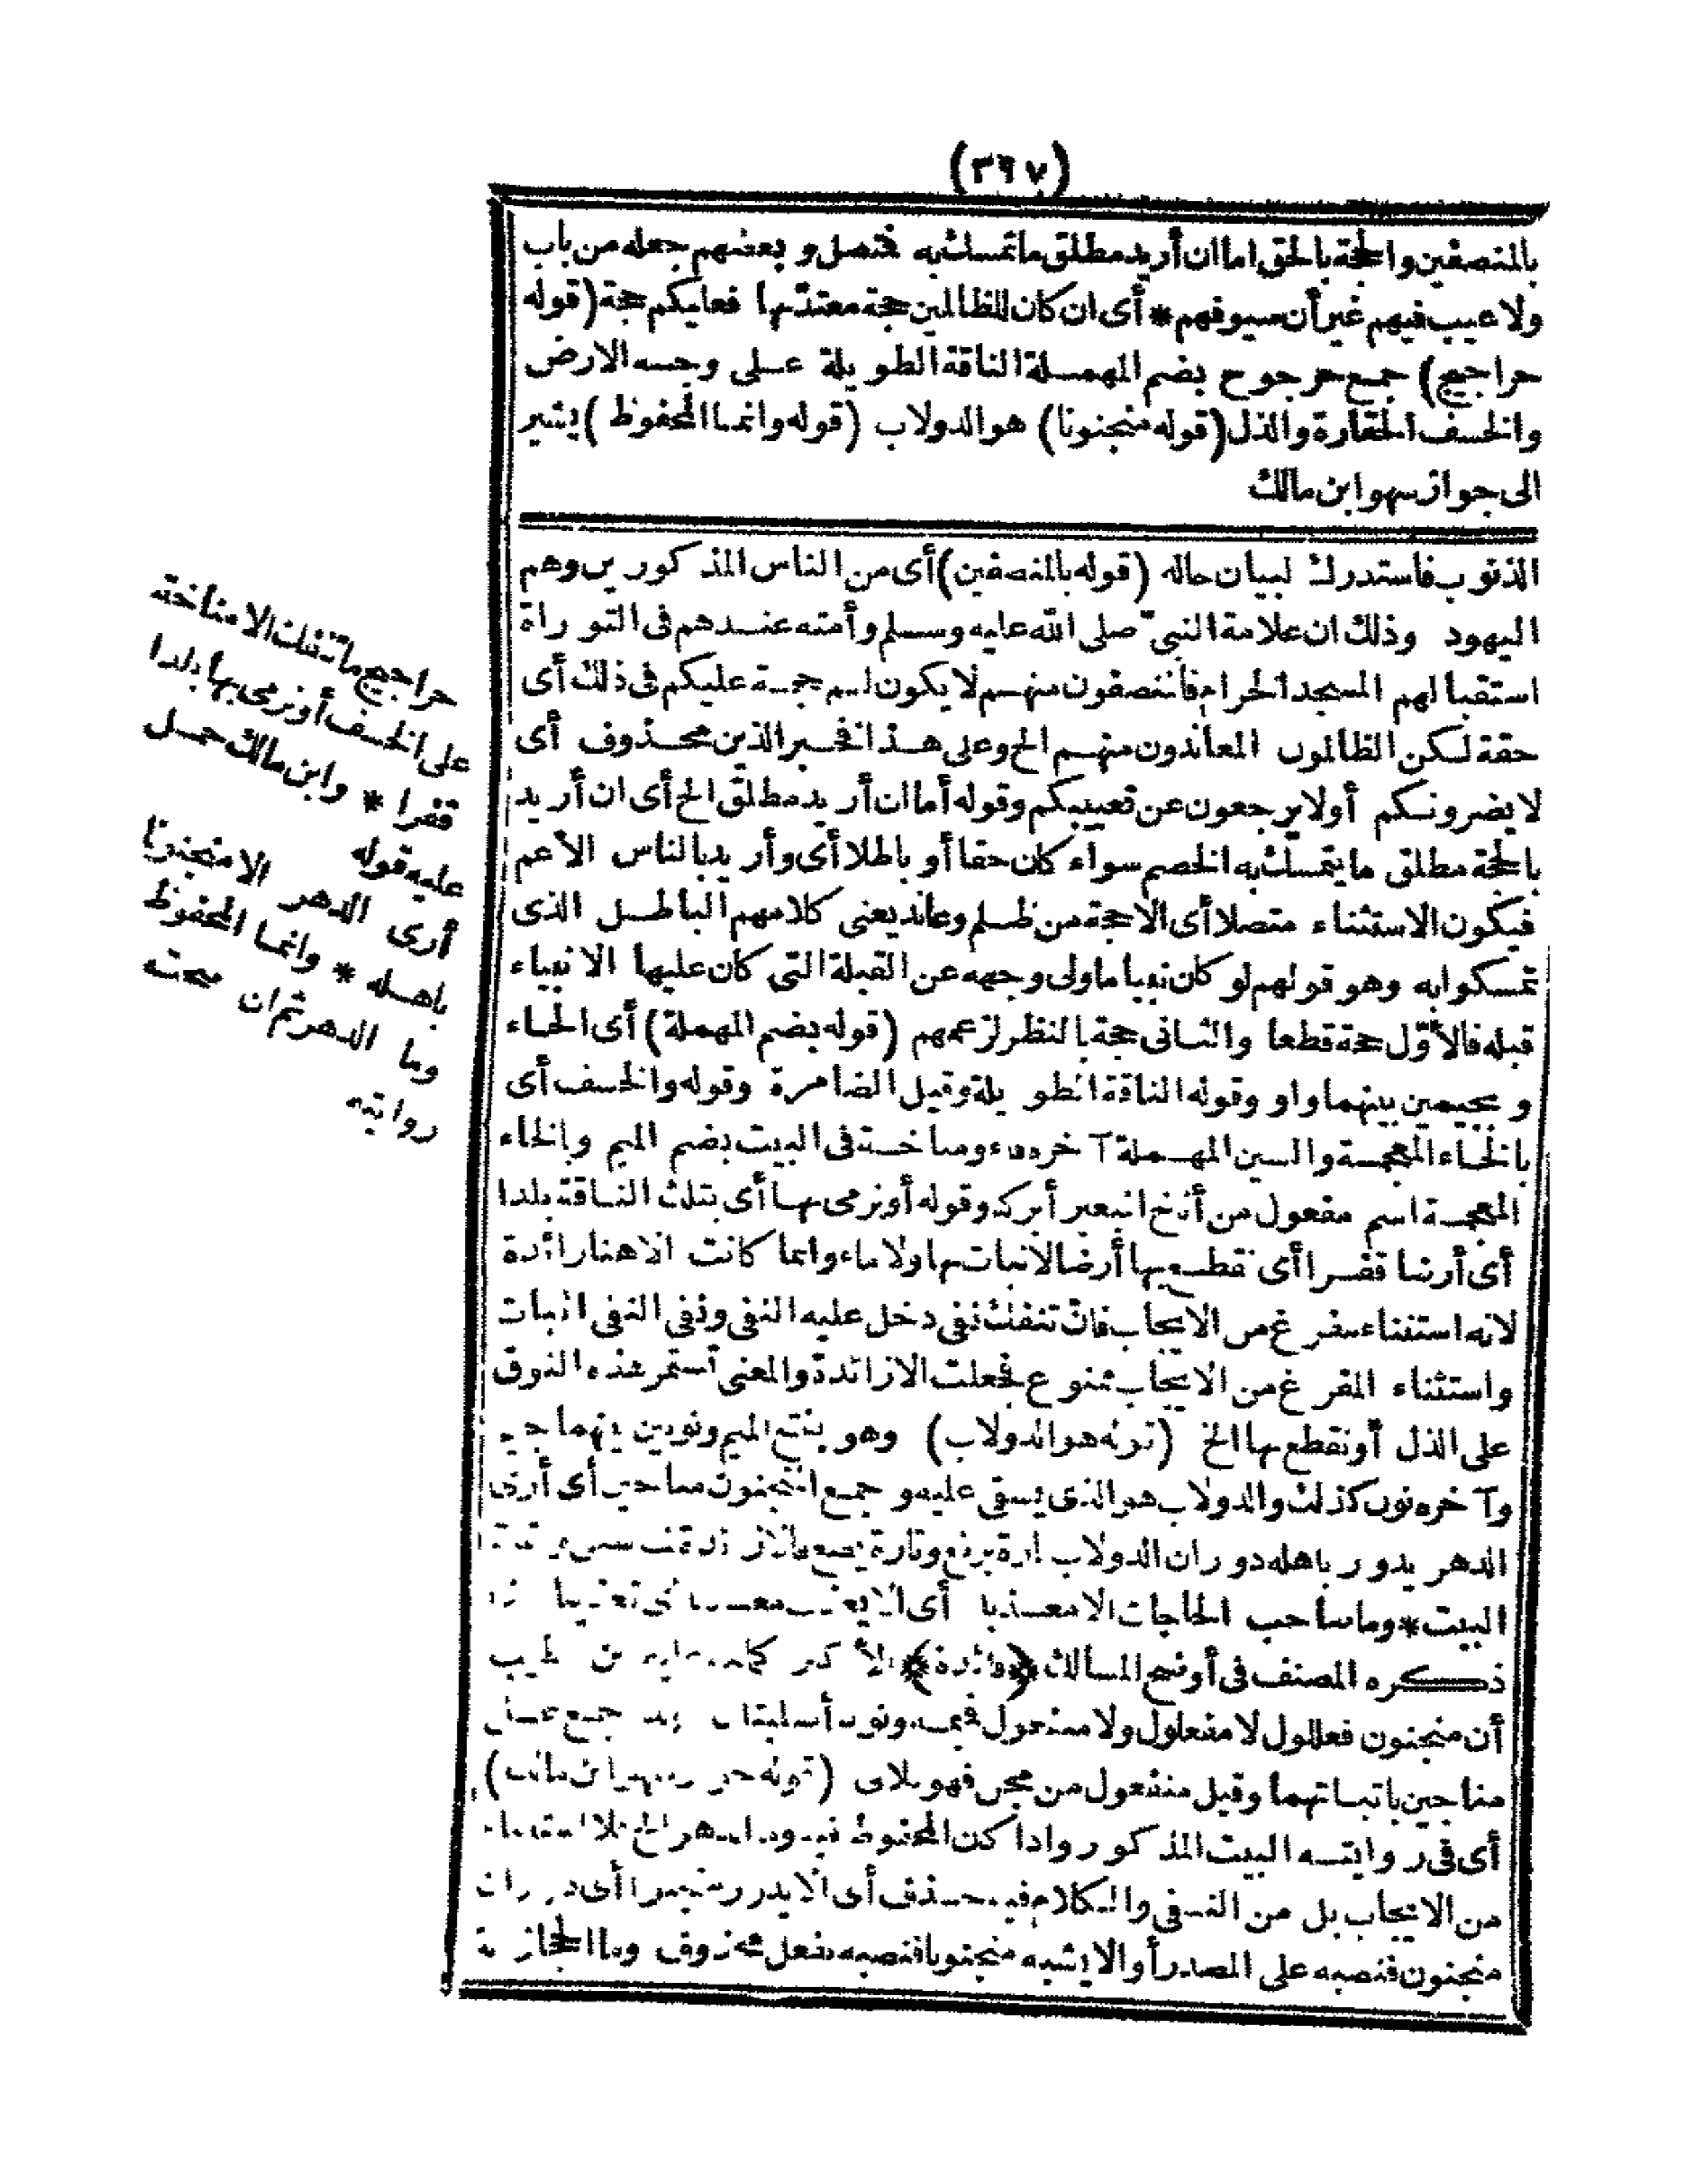 (٣٩٧)
بالمنصفين والحجة بالحق اما ان أريد مطلق ما تمسك به فتصل و بعضهم جعله من باب
ولا عيب فيهم غير أن سيوفهم * أى ان كان للظالمين حجة معتدّ بها فعليكم حجة (قوله
حراجيج) جمع حرجوج بضم المهملة الناقة الطويلة على وجه الارض
والخسف الحقارة والذل (قوله منجنونا) هو الدولاب (قوله وانما المحفوظ) يشير
الى جواز سهو ابن مالك
الذنوب فاستدرك لبيان حاله (قوله بالمنصفين) أى من الناس المذكورين وهم
اليهود وذلك ان علامة النبىّ صلى الله عليه وسلم وأمته عندهم فى التوراة
استقبالهم المسجد الحرام فالمنصفون منهم لا يكون لهم حجة عليكم فى ذلك أى
حقة لكن الظالمون المعاندون منهم الخ وعلى هذا فخبر الذين محذوف أى
لا يضرونكم أولا يرجعون عن تعييبكم وقوله أما ان أريد مطلق الخ أى ان أريد
بالحجة مطلق ما يتمسك به الخصم سواء كان حقا أو باطلا أى وأريد بالناس الأعم
فيكون الاستثناء متصلا أى الاحجة من ظلم وعاند يعنى كلامهم الباطل الذى
تمسكوا به وهو قولهم لو كان نبيا ما ولى وجهه عن القبلة التى كان عليها الانبياء
قبله فالأوّل حجة قطعا والثانى حجة بالنظر لزعمهم (قوله بضم المهملة) أى الحاء
و بجيمين بينهما واو وقوله الناقة الطويلة وقيل الضامرة وقوله والخسف أى
بالخاء المعجمة والسين المهملة آخره فاء ومناخة فى البيت بضم الميم والخاء
المعجمة اسم مفعول من أنخ البعير أبركه وقوله أو نرمى بها أى بتلك الناقة بلدا
أى أرضا قفرا أى نقطع بها أرضا لا نبات بها ولا ماء وانما كانت الا هنا زائدة
لانه استثناء مفرغ من الايجاب فانّ تنفك نفى دخل عليه النفى ونفى النفى اثبات
واستثناء المفرغ من الايجاب ممنوع فجعلت الا زائدة والمعنى تستمر هذه النوق
على الذل أو نقطع بها الخ (قوله هو الدولاب) وهو بفتح الميم ونونين بينهما جيم
وآخره نون كذلك والدولاب هو الذى يسقى عليه و جمع المنجنون مناجين أى أرى
الدهر يدور باهله دوران الدولاب تارة يرفع وتارة يضع فالا زائدة
البيت * وما صاحب الحاجات الا معذبا أى الا يعذب معذبا أى تعذيبا
ذكره المصنف فى أوضح المسالك ﴿فائدة﴾ الأكثر
أن منجنون فعللول لا منفعلول ولا مفعلول فميمه ونونه أصليتان جمع على
مناجين باثباتهما وقيل منفعول من مجن فهو ثلاثى (قوله جواز سهو ابن مالك)
أى فى روايته البيت المذكور واذا كان المحفوظ فيه وما الدهر الخ فلا استثناء
من الايجاب بل من النفى والكلام فيه حذف أى الا يدور أى دوران
منجنون فنصبه على المصدر أو الا يشبه منجنونا فنصبه بفعل محذوف وما الحجازية
حراجيج ما تنفك الا مناخة
على الخسف أو نرمى بها بلدا
قفرا * وابن مالك حمل
عليه قوله
أرى الدهر الا منجنونا
باهله * وانما المحفوظ
وما الدهر ثم ان صحت
روايته